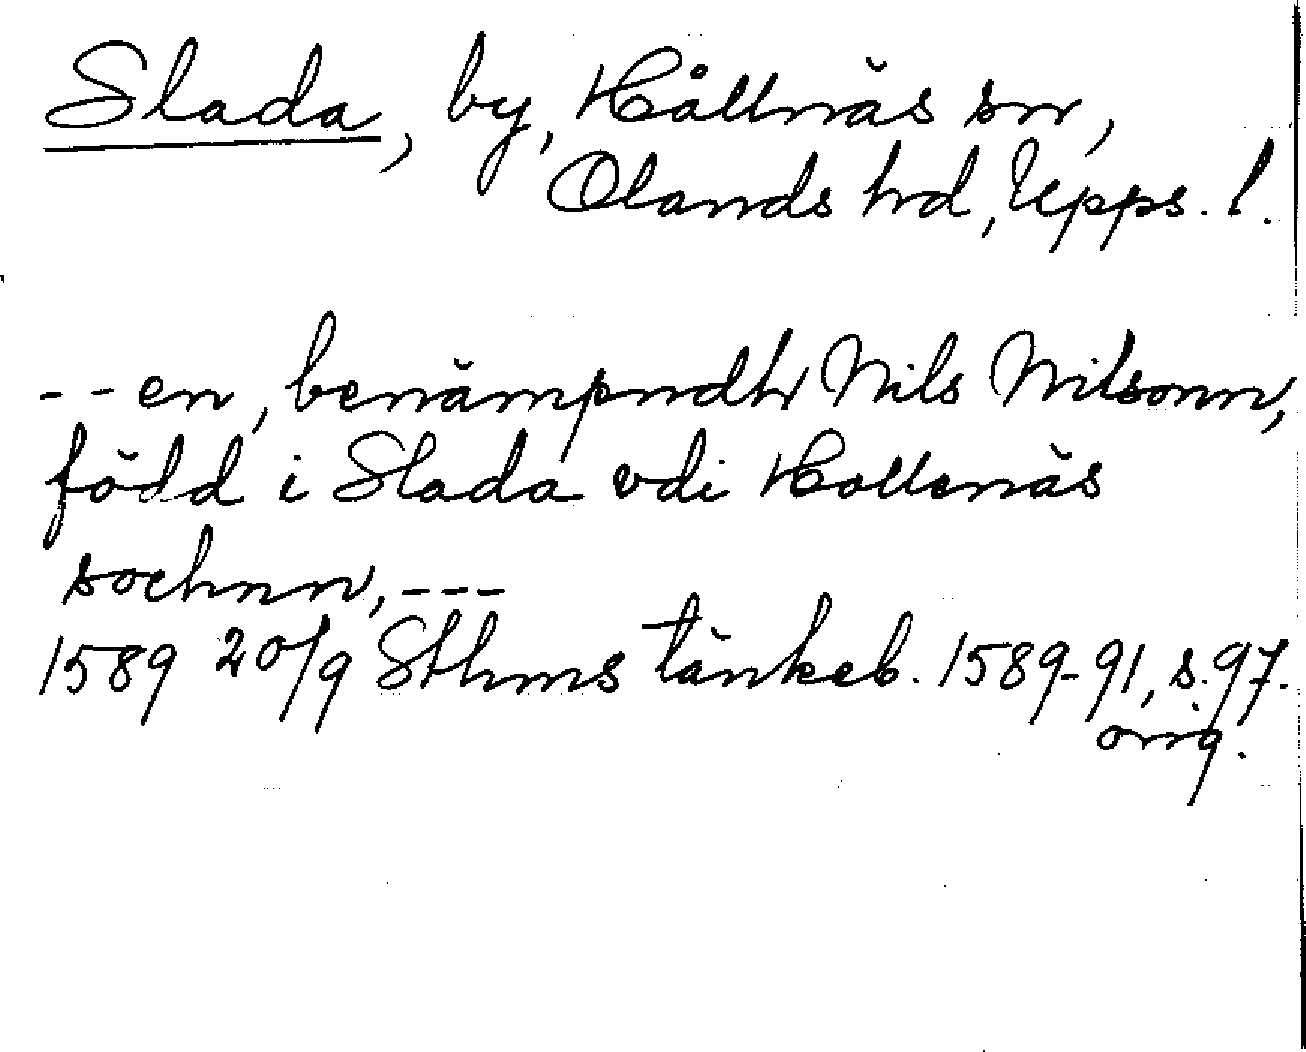 Slada, by, Hållnäs sn,
Olands hd, Upps. l.
-- en, benämpndh Nils Nilsonn,
född i Slada vdi Hollenäs
sochnn, ---
1589 20/9 Sthms tänkeb. 1589-91, s. 97.
orig.